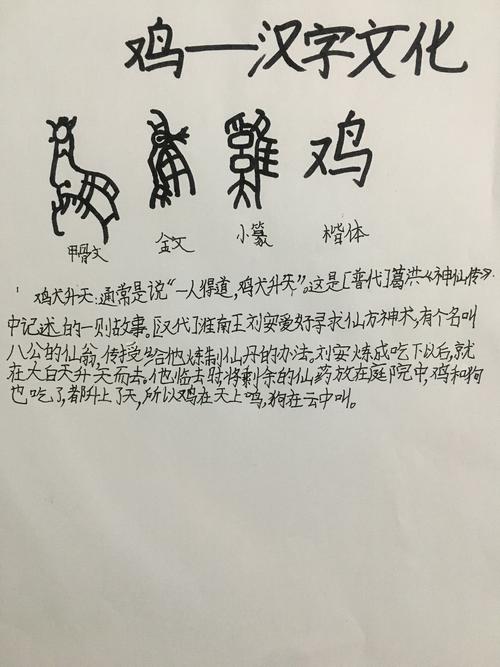 鸡——汉字文化
雞 鸡
甲骨文 金文 小篆 楷体
鸡犬升天:通常是说“一人得道,鸡犬升天”。这是[晋代]葛洪《神仙传》
中记述的一则故事。[汉代]淮南王刘安爱好寻求仙方神术,有个名叫
八公的仙翁,传授给他炼制仙丹的办法。刘安炼成吃下以后,就
在大白天升天而去。他临去时将剩余的仙药放在庭院中,鸡和狗
也吃了,都升上了天,所以鸡在天上鸣,狗在云中叫。